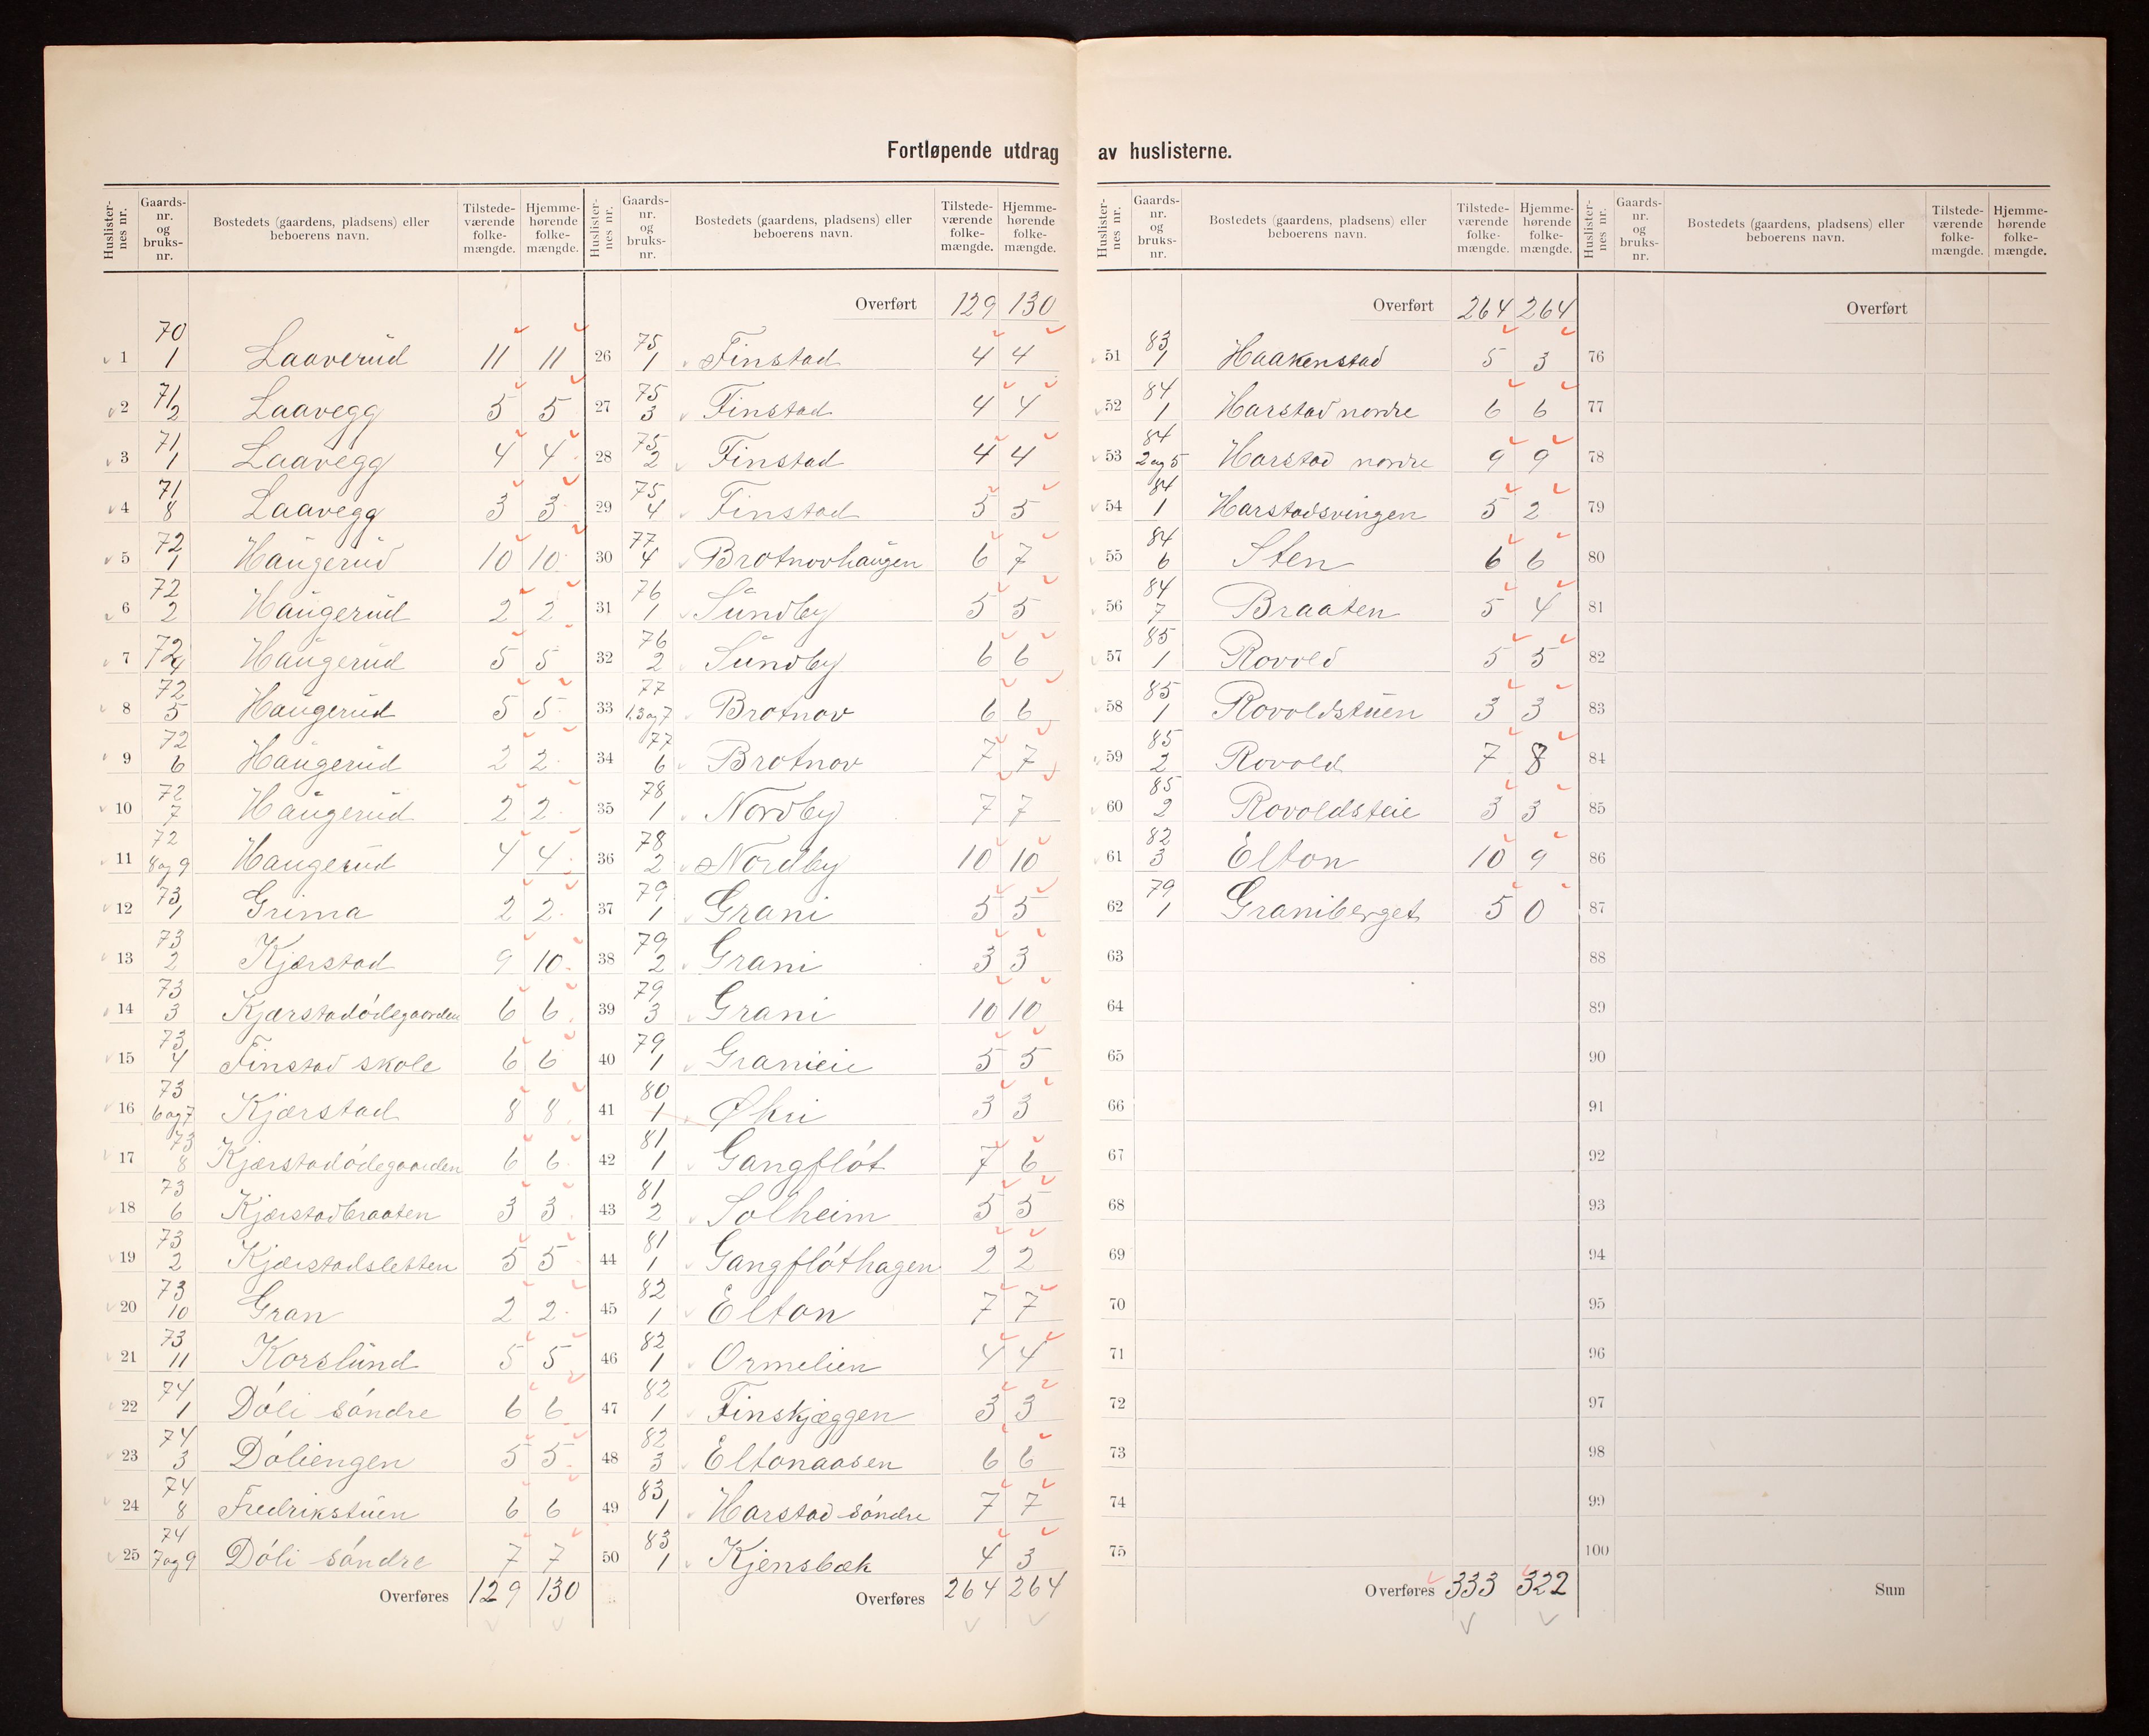 Fortløpende utdrag av huslisterne.
Huslister-nes nr. | Gaards-nr. og bruks-nr. | Bostedets (gaardens, pladsens) eller beboerens navn. | Tilstede-værende folke-mængde. | Hjemme-hørende folke-mængde.
1 70 1 Laaverud 11 11
2 71 2 Laavegg 5 5
3 71 1 Laavegg 4 4
4 71 8 Laavegg 3 3
5 72 1 Haugerud 10 10
6 72 2 Haugerud 2 2
7 72 4 Haugerud 5 5
8 72 5 Haugerud 5 5
9 72 6 Haugerud 2 2
10 72 7 Haugerud 2 2
11 72 8 og 9 Haugerud 4 4
12 73 1 Grima 2 2
13 73 2 Kjærstad 9 10
14 73 3 Kjærstadödegaarden 6 6
15 73 4 Finstad skole 6 6
16 73 6 og 7 Kjærstad 8 8
17 73 8 Kjærstadödegaarden 6 6
18 73 6 Kjærstadbraaten 3 3
19 73 2 Kjærstadsletten 5 5
20 73 10 Gran 2 2
21 73 11 Korslund 5 5
22 74 1 Döli söndre 6 6
23 74 3 Döliengen 5 5
24 74 8 Fredrikstuen 6 6
25 74 7 og 9 Döli söndre 7 7
Overføres 129 130
Huslister-nes nr. | Gaards-nr. og bruks-nr. | Bostedets (gaardens, pladsens) eller beboerens navn. | Tilstede-værende folke-mængde. | Hjemme-hørende folke-mængde.
Overført 129 130
26 75 1 Finstad 4 4
27 75 3 Finstad 4 4
28 75 2 Finstad 4 4
29 75 4 Finstad 5 5
30 77 4 Brotnovhaugen 6 7
31 76 1 Sundby 5 5
32 76 2 Sundby 6 6
33 77 1,5 og 7 Brotnov 6 6
34 77 6 Brotnov 7 7
35 78 1 Nordby 7 7
36 78 2 Nordby 10 10
37 79 1 Grani 5 5
38 79 2 Grani 3 3
39 79 3 Grani 10 10
40 79 1 Granieie 5 5
41 80 1 Øhri 3 3
42 81 1 Gangflöt 7 6
43 81 2 Solheim 5 5
44 81 1 Gangflöthagen 2 2
45 82 1 Elton 7 7
46 82 1 Ormelien 4 4
47 82 1 Finskjæggen 3 3
48 82 3 Eltonaasen 6 6
49 83 1 Harstad söndre 7 7
50 83 1 Kjensbæk 4 3
Overføres 264 264
Huslister-nes nr. | Gaards-nr. og bruks-nr. | Bostedets (gaardens, pladsens) eller beboerens navn. | Tilstede-værende folke-mængde. | Hjemme-hørende folke-mængde.
Overført 264 264
51 83 1 Haakenstad 5 3
52 84 1 Harstad nordre 6 6
53 84 2 og 5 Harstad nordre 9 9
54 84 1 Harstadsvingen 5 2
55 84 6 Sten 6 6
56 84 7 Braaten 5 4
57 85 1 Rovold 5 5
58 85 1 Rovoldstuen 3 3
59 85 2 Rovold 7 8
60 85 2 Rovoldsteie 3 3
61 82 3 Elton 10 9
62 79 1 Graniberget 5 0
63
64
65
66
67
68
69
70
71
72
73
74
75
Overføres 333 322
Huslister-nes nr. | Gaards-nr. og bruks-nr. | Bostedets (gaardens, pladsens) eller beboerens navn. | Tilstede-værende folke-mængde. | Hjemme-hørende folke-mængde.
Overført
76
77
78
79
80
81
82
83
84
85
86
87
88
89
90
91
92
93
94
95
96
97
98
99
100
Sum